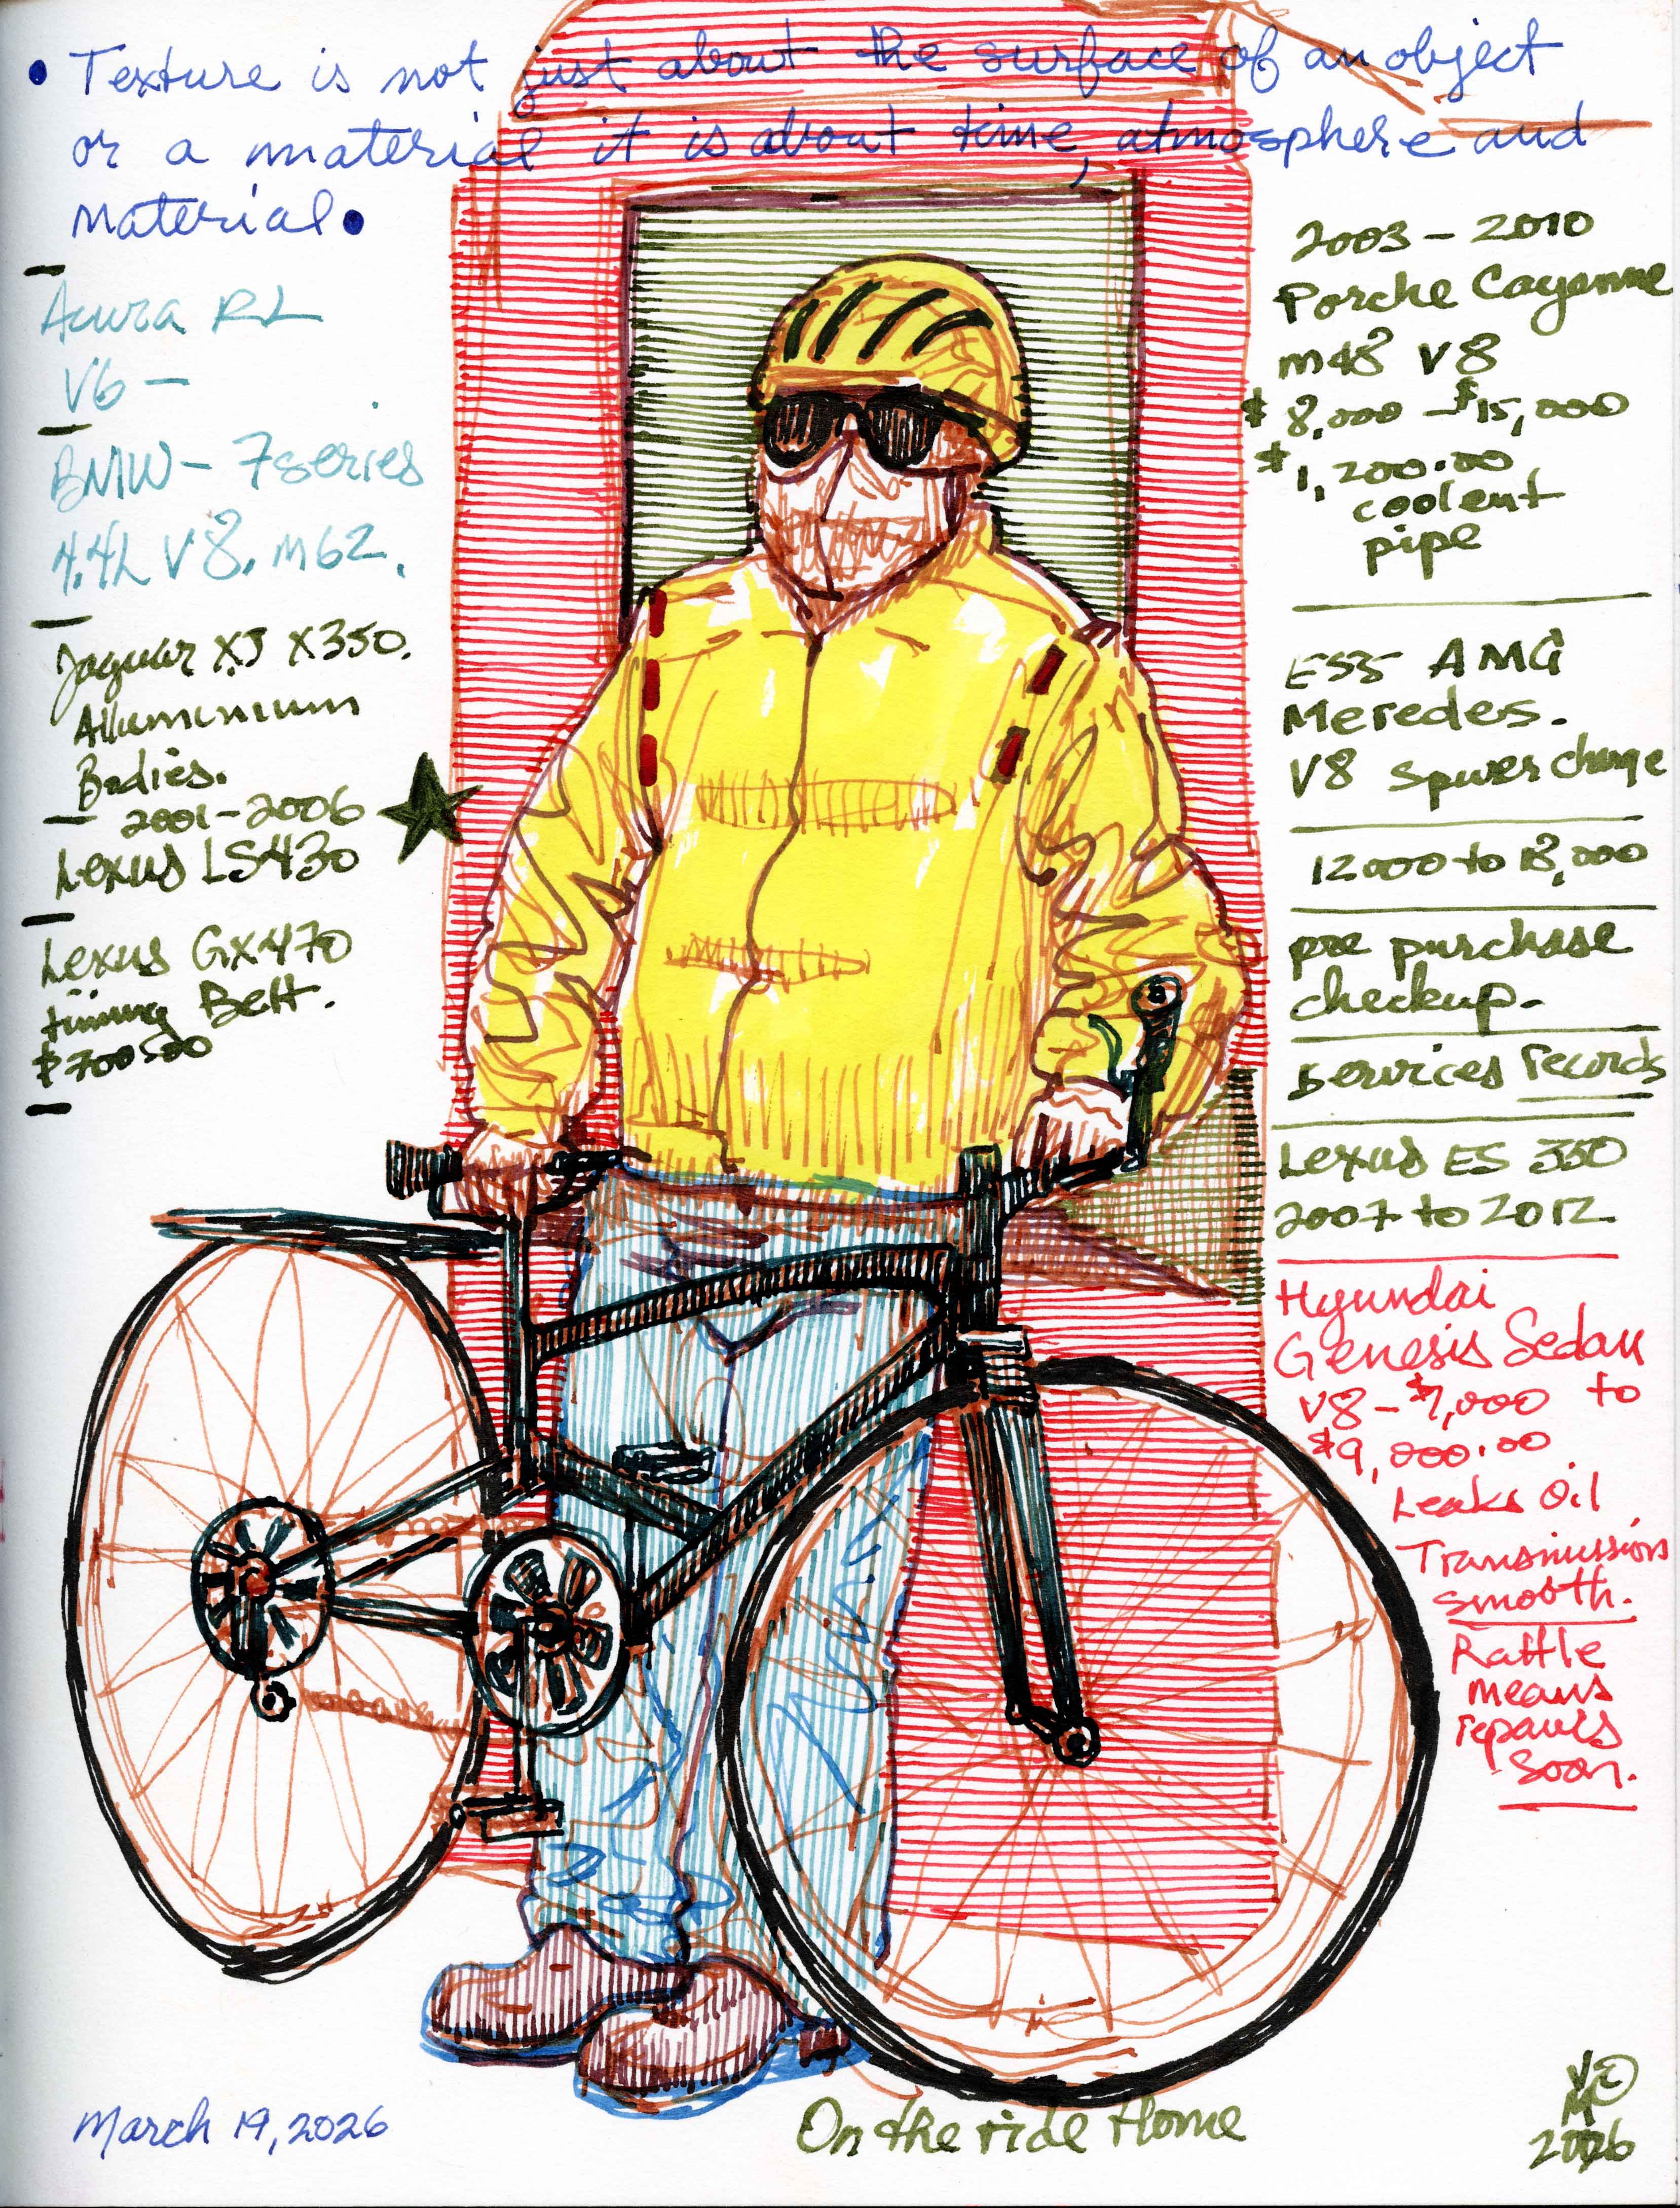 • Texture is not just about the surface of an object
or a material it is about time, atmosphere and
material •
Acura RL
V6 –
BMW – 7 series
4.4L V8. M62.
Jaguar XJ X350.
Alluminium
Bodies.
– 2001-2006
Lexus LS430
Lexus GX470
timing Belt.
$700.00
2003 – 2010
Porche Cayenne
M48 V8
$8,000 – $15,000
$1,200.00
coolent
pipe
E55 AMG
Meredes.
V8
12000 to 18,000
pre purchase
checkup.
services records
Lexus ES 350
2007 to 2012
Hyundai
Genesis Sedan
V8 – $7,000 to
$9,000.00
Leaks Oil
Transmission
smooth.
Rattle
means
soon.
March 19, 2026
On the ride Home
2026